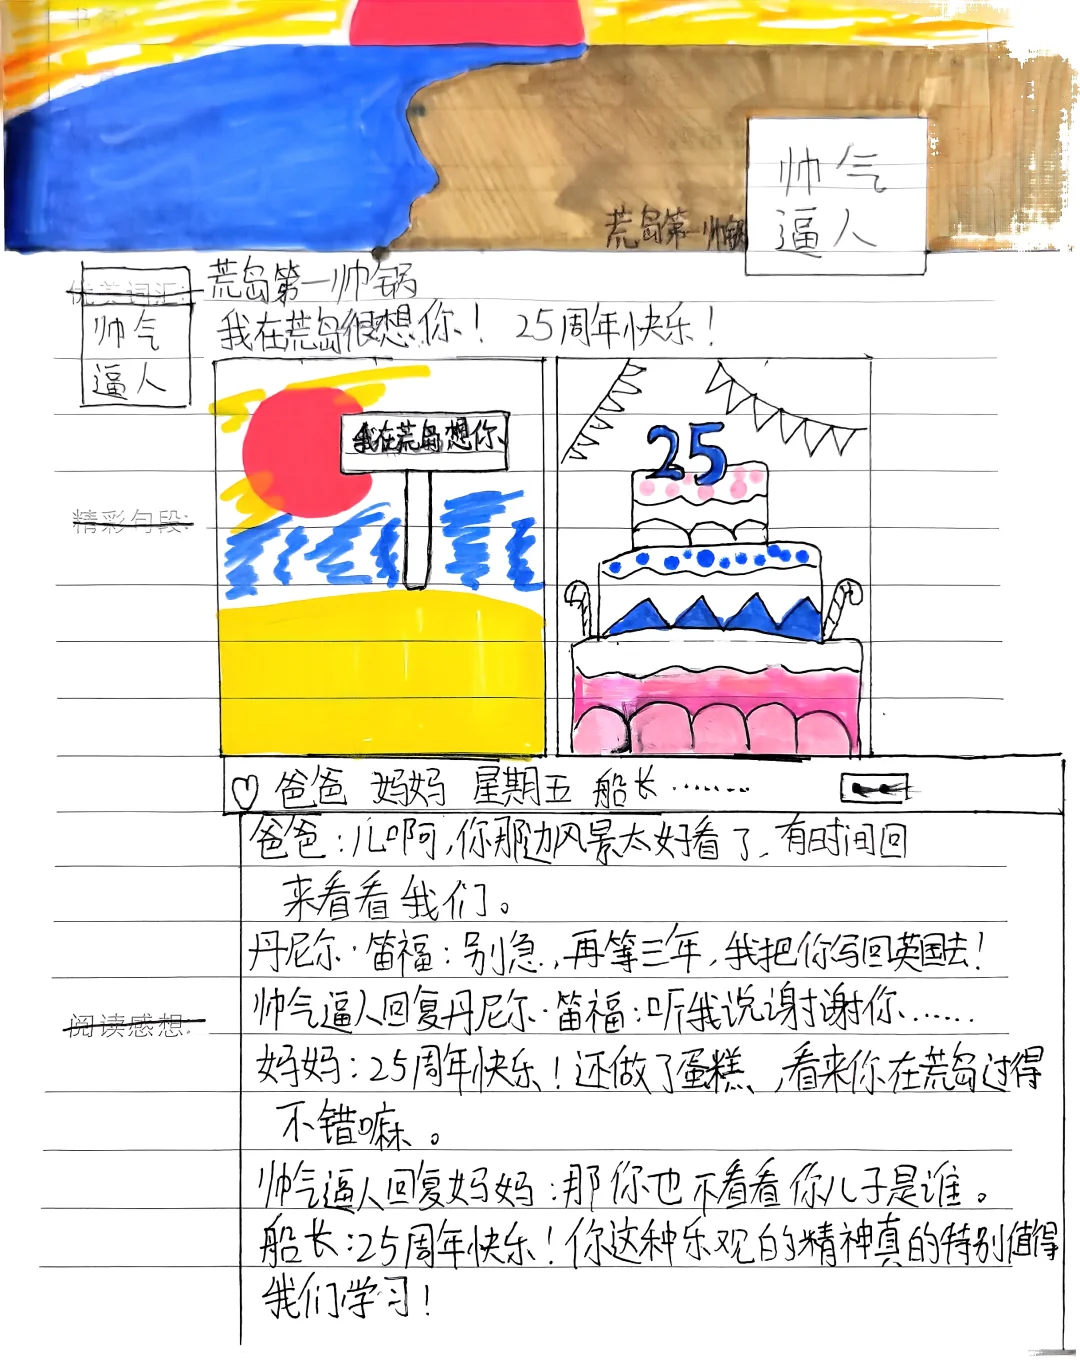 书名
帅气
逼人
荒岛第一帅锅
优美词汇:
荒岛第一帅锅
帅气
逼人
我在荒岛很想你! 25周年快乐!
我在荒岛想你
25
精彩句段:
爸爸 妈妈 星期五 船长……
爸爸:儿啊,你那边风景太好看了,有时间回
来看看我们。
丹尼尔·笛福:别急,再等三年,我把你写回英国去!
帅气逼人回复丹尼尔·笛福:听我说谢谢你……
阅读感想:
妈妈:25周年快乐!还做了蛋糕,看来你在荒岛过得
不错嘛。
帅气逼人回复妈妈:那你也不看看你儿子是谁。
船长:25周年快乐!你这种乐观的精神真的特别值得
我们学习!